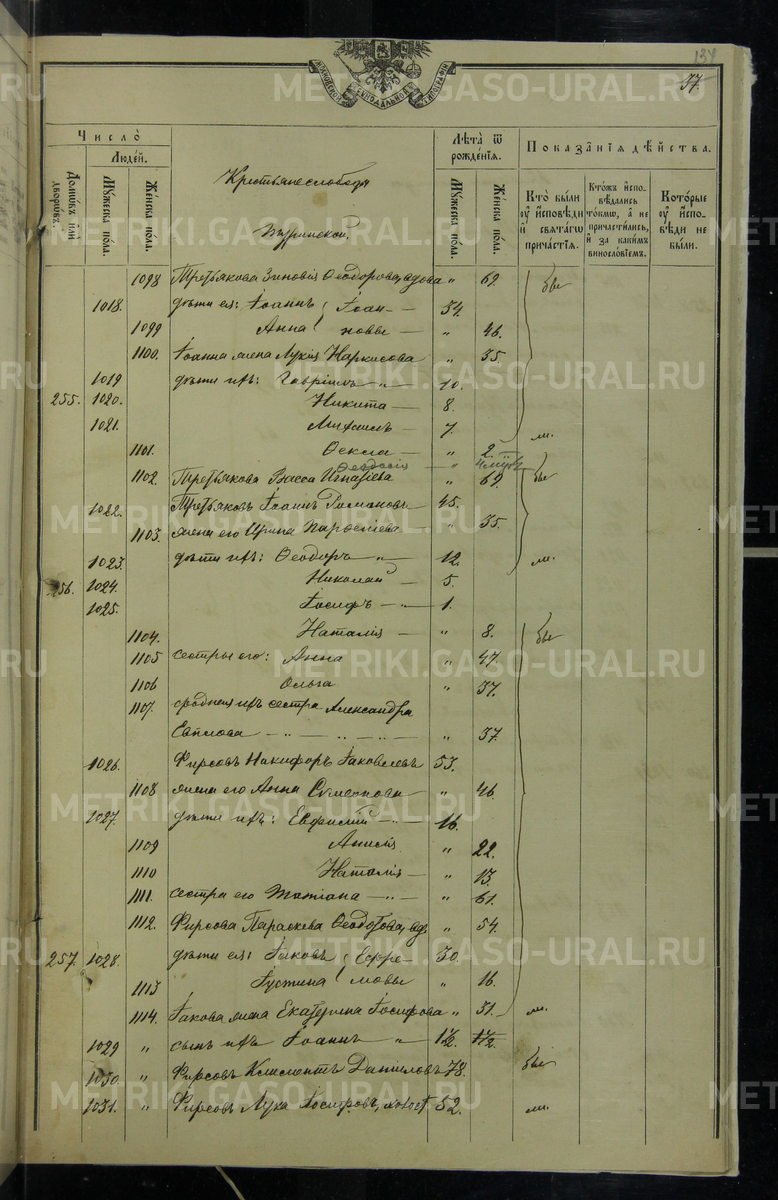 138
37.
МОСКОВСКОЙ СѴНОДАЛЬНОЙ ТИПОГРАФІИ
Число̀
Лѣ́та ѿ рожде́нїя.
Показа̑нїя дѣ́йства.
Домѡ́въ и҆лѝ дворѡ́въ.
Люде́й.
Му́жеска по́ла.
Же́нска по́ла.
Крестьяне слободы
Туринской.
Му́жеска по́ла.
Же́нска по́ла.
Кто̀ бы́ли ᲂу҆ и҆сповѣди и҆ свѧта́гѡ прича́стїѧ.
Кто́жъ и҆сповѣдались то́кмѡ, а҆ не причасти́лись, и҆ за каки́мъ винослѡ́вїемъ.
Кото́рые ᲂу҆ и҆сповѣди не бы́ли.
1098 Третьякова Зиновія Ѳеодорова, вдова " 69. бы
1018. дѣти ея: Іоаннъ } Іоан- — 54.
1099 Анна } новы — " 46.
1100. Іоанна жена Лукія Наркисова " 35.
1019 дѣти ихъ: Гавріилъ " — 10.
255. 1020. Никита — 8.
1021. Михаилъ — 7.
1101. Ѳекла — " 2
Ѳеодосія — "
1102. Третьякова Васса Игнатіева " 69. бы
1022. Третьяковъ Іоаннъ Романовъ 45.
1103. жена его Ирина Парѳеніева — " 35.
1023. дѣти ихъ: Ѳеодоръ " — 12.
256. 1024. Николай — 5.
1025. Іосифъ — " — 1.
1104. Наталія — " 8. бы
1105 сестры его: Анна " 47.
1106 Ольга " 37.
1107. сродная ихъ сестра Александра
Евплова — " — " — " — " 37.
1026. Фирсовъ Никифоръ Іаковлевъ 53.
1108 жена его Анна Сѵмеонова " 46.
1027. дѣти ихъ: Евфимій — " — 16.
1109 Анисія " 22.
1110 Наталія — " 13.
1111. сестра его Татіана — " — " 61.
1112. Фирсова Параскева Ѳеодотова, вд. " 54.
257. 1028. дѣти ея: Іаковъ } Ефре- 30.
1113 Іустина } мовы " 16.
1114. Іакова жена Екатерина Іосифова " 31.
1029 " сынъ ихъ Іоаннъ " 1½. 1½.
1030 " Фирсовъ Климентъ Даниловъ 78. бы
1031. " Фирсовъ Лука Іосифовъ, холост 52.
METRIKI.GASO-URAL.RU